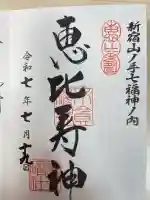 新宿山ノ手七福神ノ内
恵比寿神
令和七年七月十九日